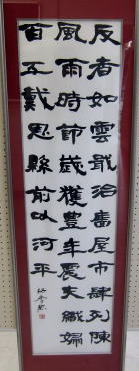 反者如雲戢治廧屋市肆列陳
風雨時節歲獲豐年農夫織婦
百工戴恩縣前以河平